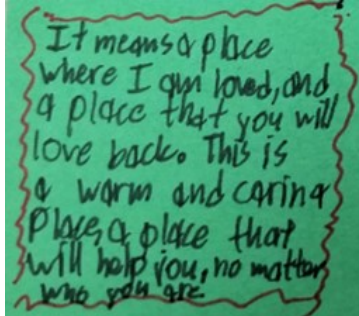 It means a place
where I am loved, and
a place that you will
love back. This is
a warm and caring
place, a place that
will help you, no matter
who you are